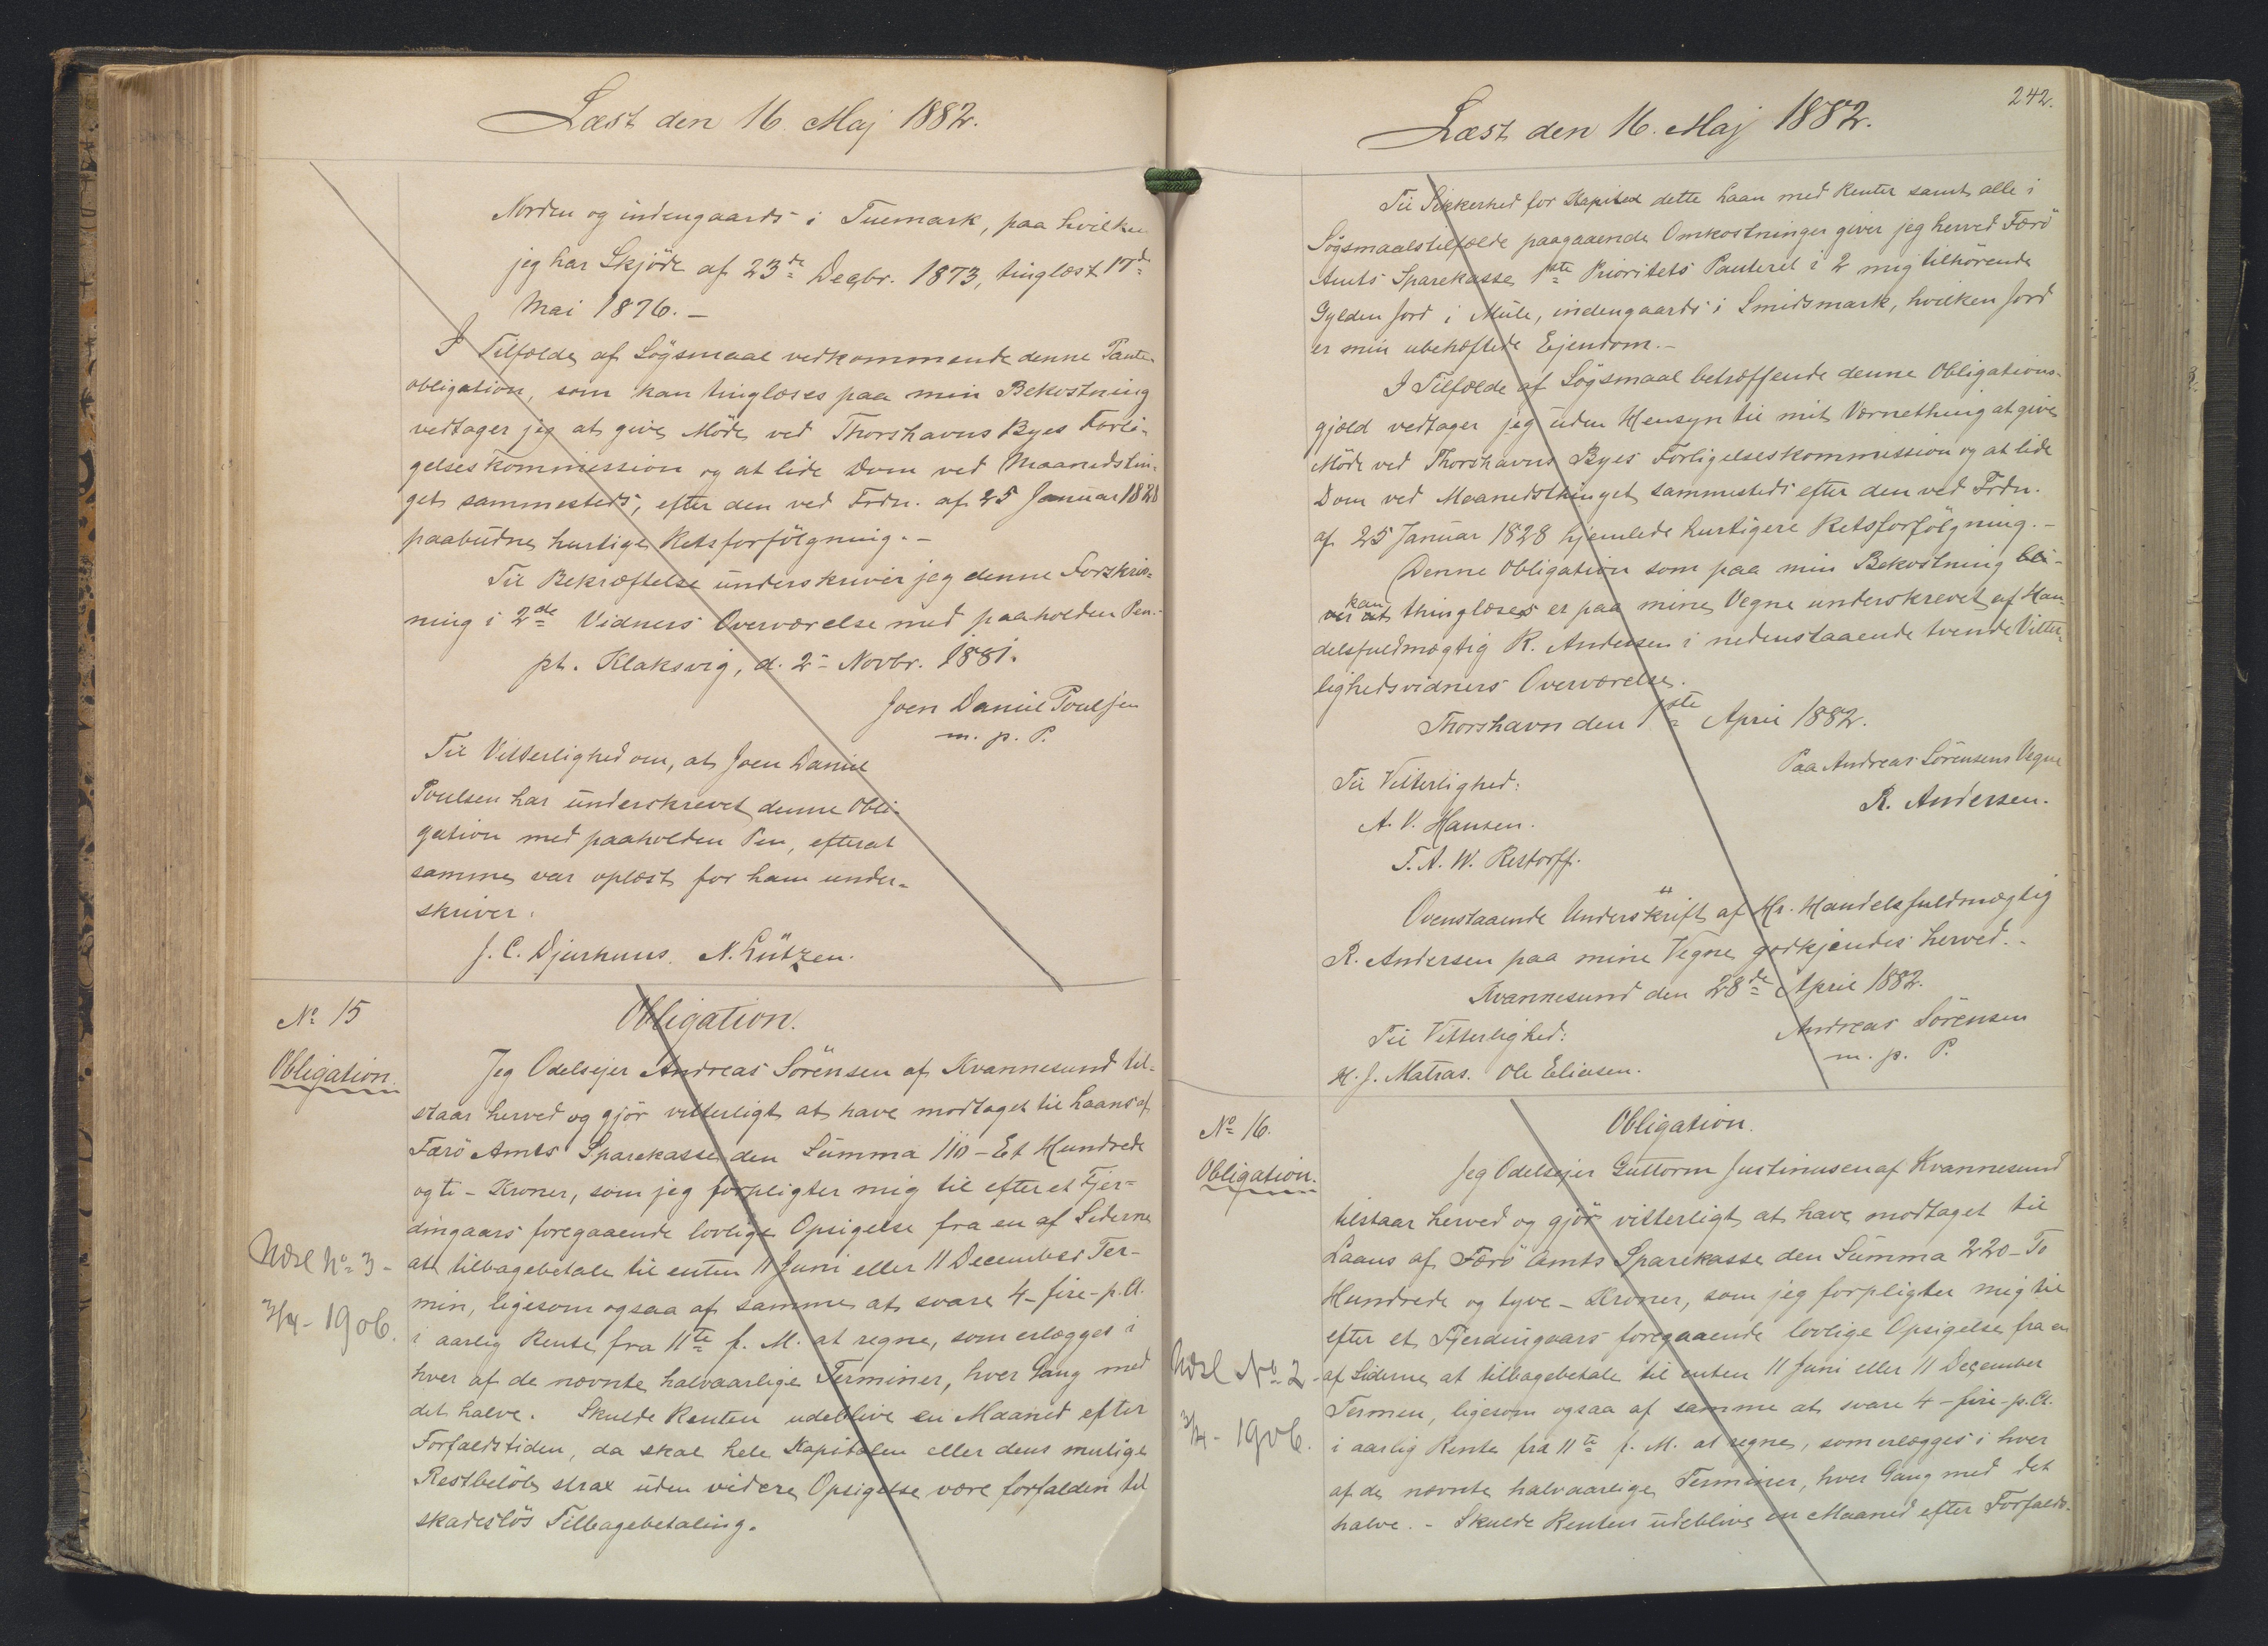 Læst den 16. Maj 1882.
Norden og indengaards i Tuemark, paa hvilken
jeg har Skjöde af 23de Decbr. 1873, tinglæst 17de
Mai 1876. -
I Tilfælde af Lögsmaal vedkommende denne Pante-
obligation, som kan tinglæses paa min Bekostning
vedtager jeg at give Möde ved Thorshavns Byes Forli-
gelseskommission og at lide Dom ved Maanedstin-
get sammesteds, efter den ved Frdn. af 25 Januar 1828
paabudne hurtige Retsforfölgning. -
Til Bekræftelse underskriver jeg denne Forskriv-
ning i 2de Vidners Overværelse med paaholden Pen.
pt. Klaksvig, d. 2- Novbr. 1881.
Joen Daniel Poulsen
m. p. P.
Til Vitterlighed om, at Joen Daniel
Poulsen har underskrevet denne Obli-
gation med paaholden Pen, efterat
samme var oplæst for ham under-
skriver:
J. C. Djurhuus. N. Lützen.
No 15
Obligation.
Obligation.
Jeg Odelsejer Andreas Sörensen af Kvannesund til-
staar herved og gjör vitterligt at have modtaget til Laans af
Færö Amts Sparekasse den Summa 110 - Et Hundrede
og ti - Kroner, som jeg forpligter mig til efter et Fjer-
dingaars foregaaende lovlige Opsigelse fra en af Siderne
at tilbagebetale til enten 11 Juni eller 11 December Ter-
min, ligesom ogsaa af samme at svare 4 - fire - p. Ct.
i aarlig Rente fra 11te f. M. at regne, som erlægges i
hver af de nævnte halvaarlige Terminer, hver Gang med
det halve. Skulde Renten udeblive en Maaned efter
Forfaldstiden, da skal hele Kapitalen eller dens mulige
Restbelöb strax uden videre Opsigelse være forfalden til
skadeslös Tilbagebetaling.
Udsl No 3 -
3/4 - 1906.
242.
Læst den 16. Maj 1882.
Til Sikkerhed for Kapital dette Laan med Renter samt alle i
Sögsmaalstilfælde paagaaende Omkostninger giver jeg herved Færö
Amts Sparekasse 1ste Prioritets Panteret i 2 mig tilhörende
Gylden Jord i Mule, indengaards i Smidsmark, hvilken Jord
er min ubehæftede Ejendom. -
I Tilfælde af Sögsmaal betræffende denne Obligations-
gjæld vedtager jeg uden Hensyn til mit Værnething at give
Möde ved Thorshavns Byes Forligelseskommission og at lide
Dom ved Maanedsthinget sammesteds efter den ved Frdn.
af 25 Januar 1828 hjemlede hurtigere Retsforfölgning. -
Denne Obligation som paa min Bekostning bli-
ver at kan thinglæses er paa mine Vegne underskrevet af Han-
delsfuldmægtig R. Andersen i nedenstaaende tvende Vitter-
lighedsvidners Overværelse.
Thorshavn den 1ste April 1882.
Paa Andreas Sörensens Vegne
R. Andersen.
Til Vitterlighed:
A. V. Hansen.
T. A. W. Restorff.
Ovenstaaende Underskrift af Hr. Handelsfuldmægtig
R. Andersen paa mine Vegne godkjendes herved. -
Kvannesund den 28de April 1882.
Andreas Sörensen
m. p. P.
Til Vitterlighed:
H. J. Matras. Ole Eliasen.
No 16.
Obligation.
Obligation.
Jeg Odelsejer Guttorm Justinusen af Kvannesund
tilstaar herved og gjör vitterligt at have modtaget til
Laans af Færö Amts Sparekasse den Summa 220 - To
Hundrede og tyve - Kroner, som jeg forpligter mig til
efter et Fjerdingaars foregaaende lovlige Opsigelse fra en
af Siderne at tilbagebetale til enten 11 Juni eller 11 December
Termen, ligesom ogsaa af samme at svare 4 - fire - p. Ct.
i aarlig Rente fra 11te f. M. at regne, som erlægges i hver
af de nævnte halvaarlige Terminer, hver Gang med det
halve. - Skulde Renten udeblive en Maaned efter Forfalds-
Udsl No 2 -
3/4 - 1906.